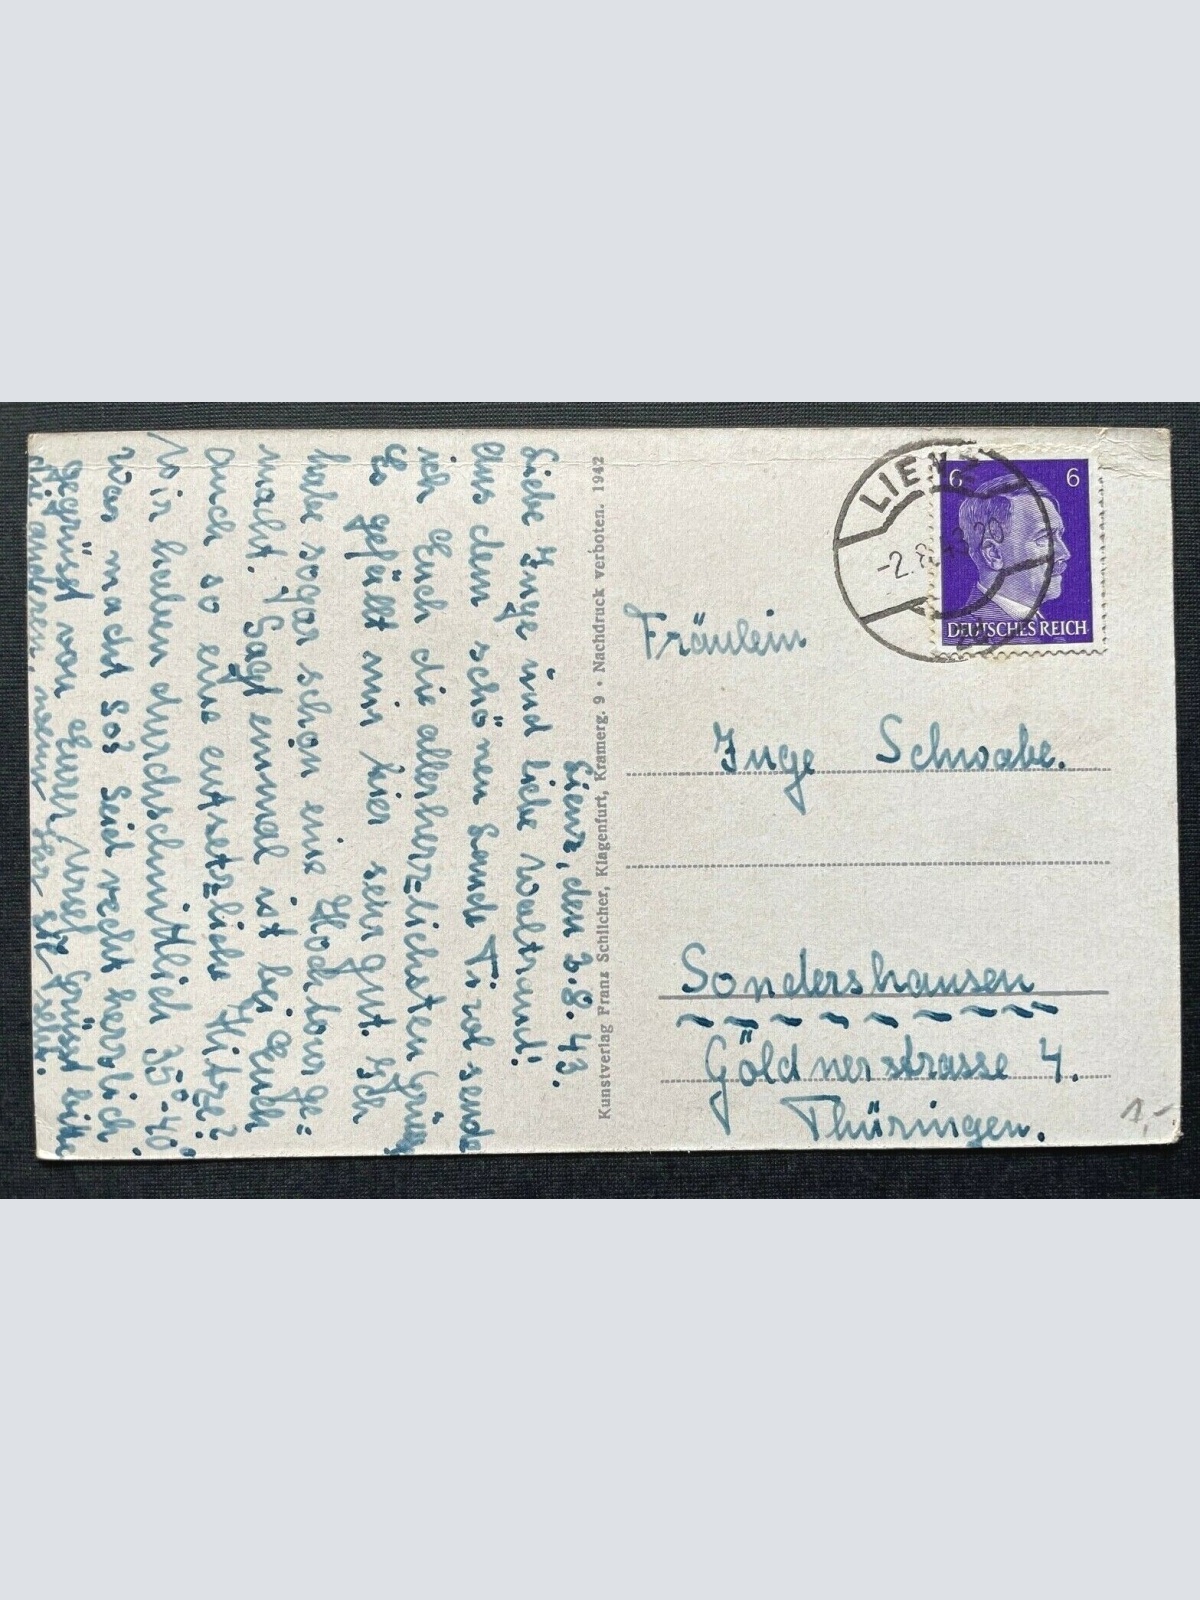 Lienz, den 2.8.43.
Liebe Inge und liebe Waltraud!
Aus dem schönen Lande Tirol sende
ich Euch die allerherzlichsten Grüße
Es gefällt mir hier sehr gut.
habe sogar schon eine Hochtour ge=
macht. Sagt einmal ist bei Euch
auch so eine entsetzliche Hitze?
Wir haben durchschnittlich 35°-40°
Was macht Ihr? Seid recht herzlich
gegrüßt von Eurer
die anderen
Kunstverlag Franz Schilcher, Klagenfurt, Kramerg. 9 · Nachdruck verboten. 1942
LIENZ
-2.8.43.20
6 6
DEUTSCHES REICH
Fräulein
Inge Schwabe.
Sondershausen
Göldnerstrasse 4.
Thüringen.
1,-